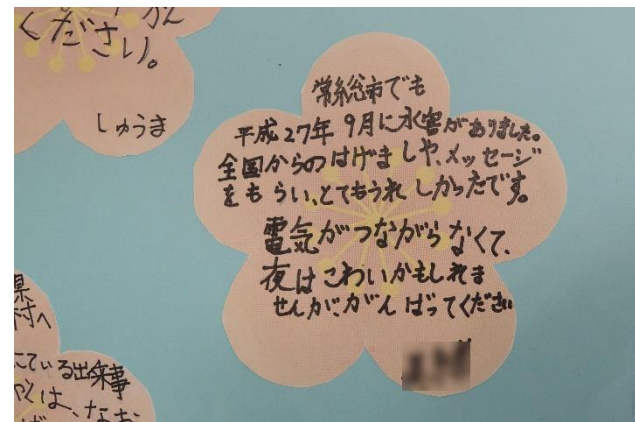 ください。
しゅうま
常総市でも
平成27年9月に水害がありました。
全国からのはげましや、メッセージ
をもらい、とてもうれしかったです。
電気がつながらなくて、
夜はこわいかもしれま
せんが、がんばってください
県
村へ
ている出来事
は、なお